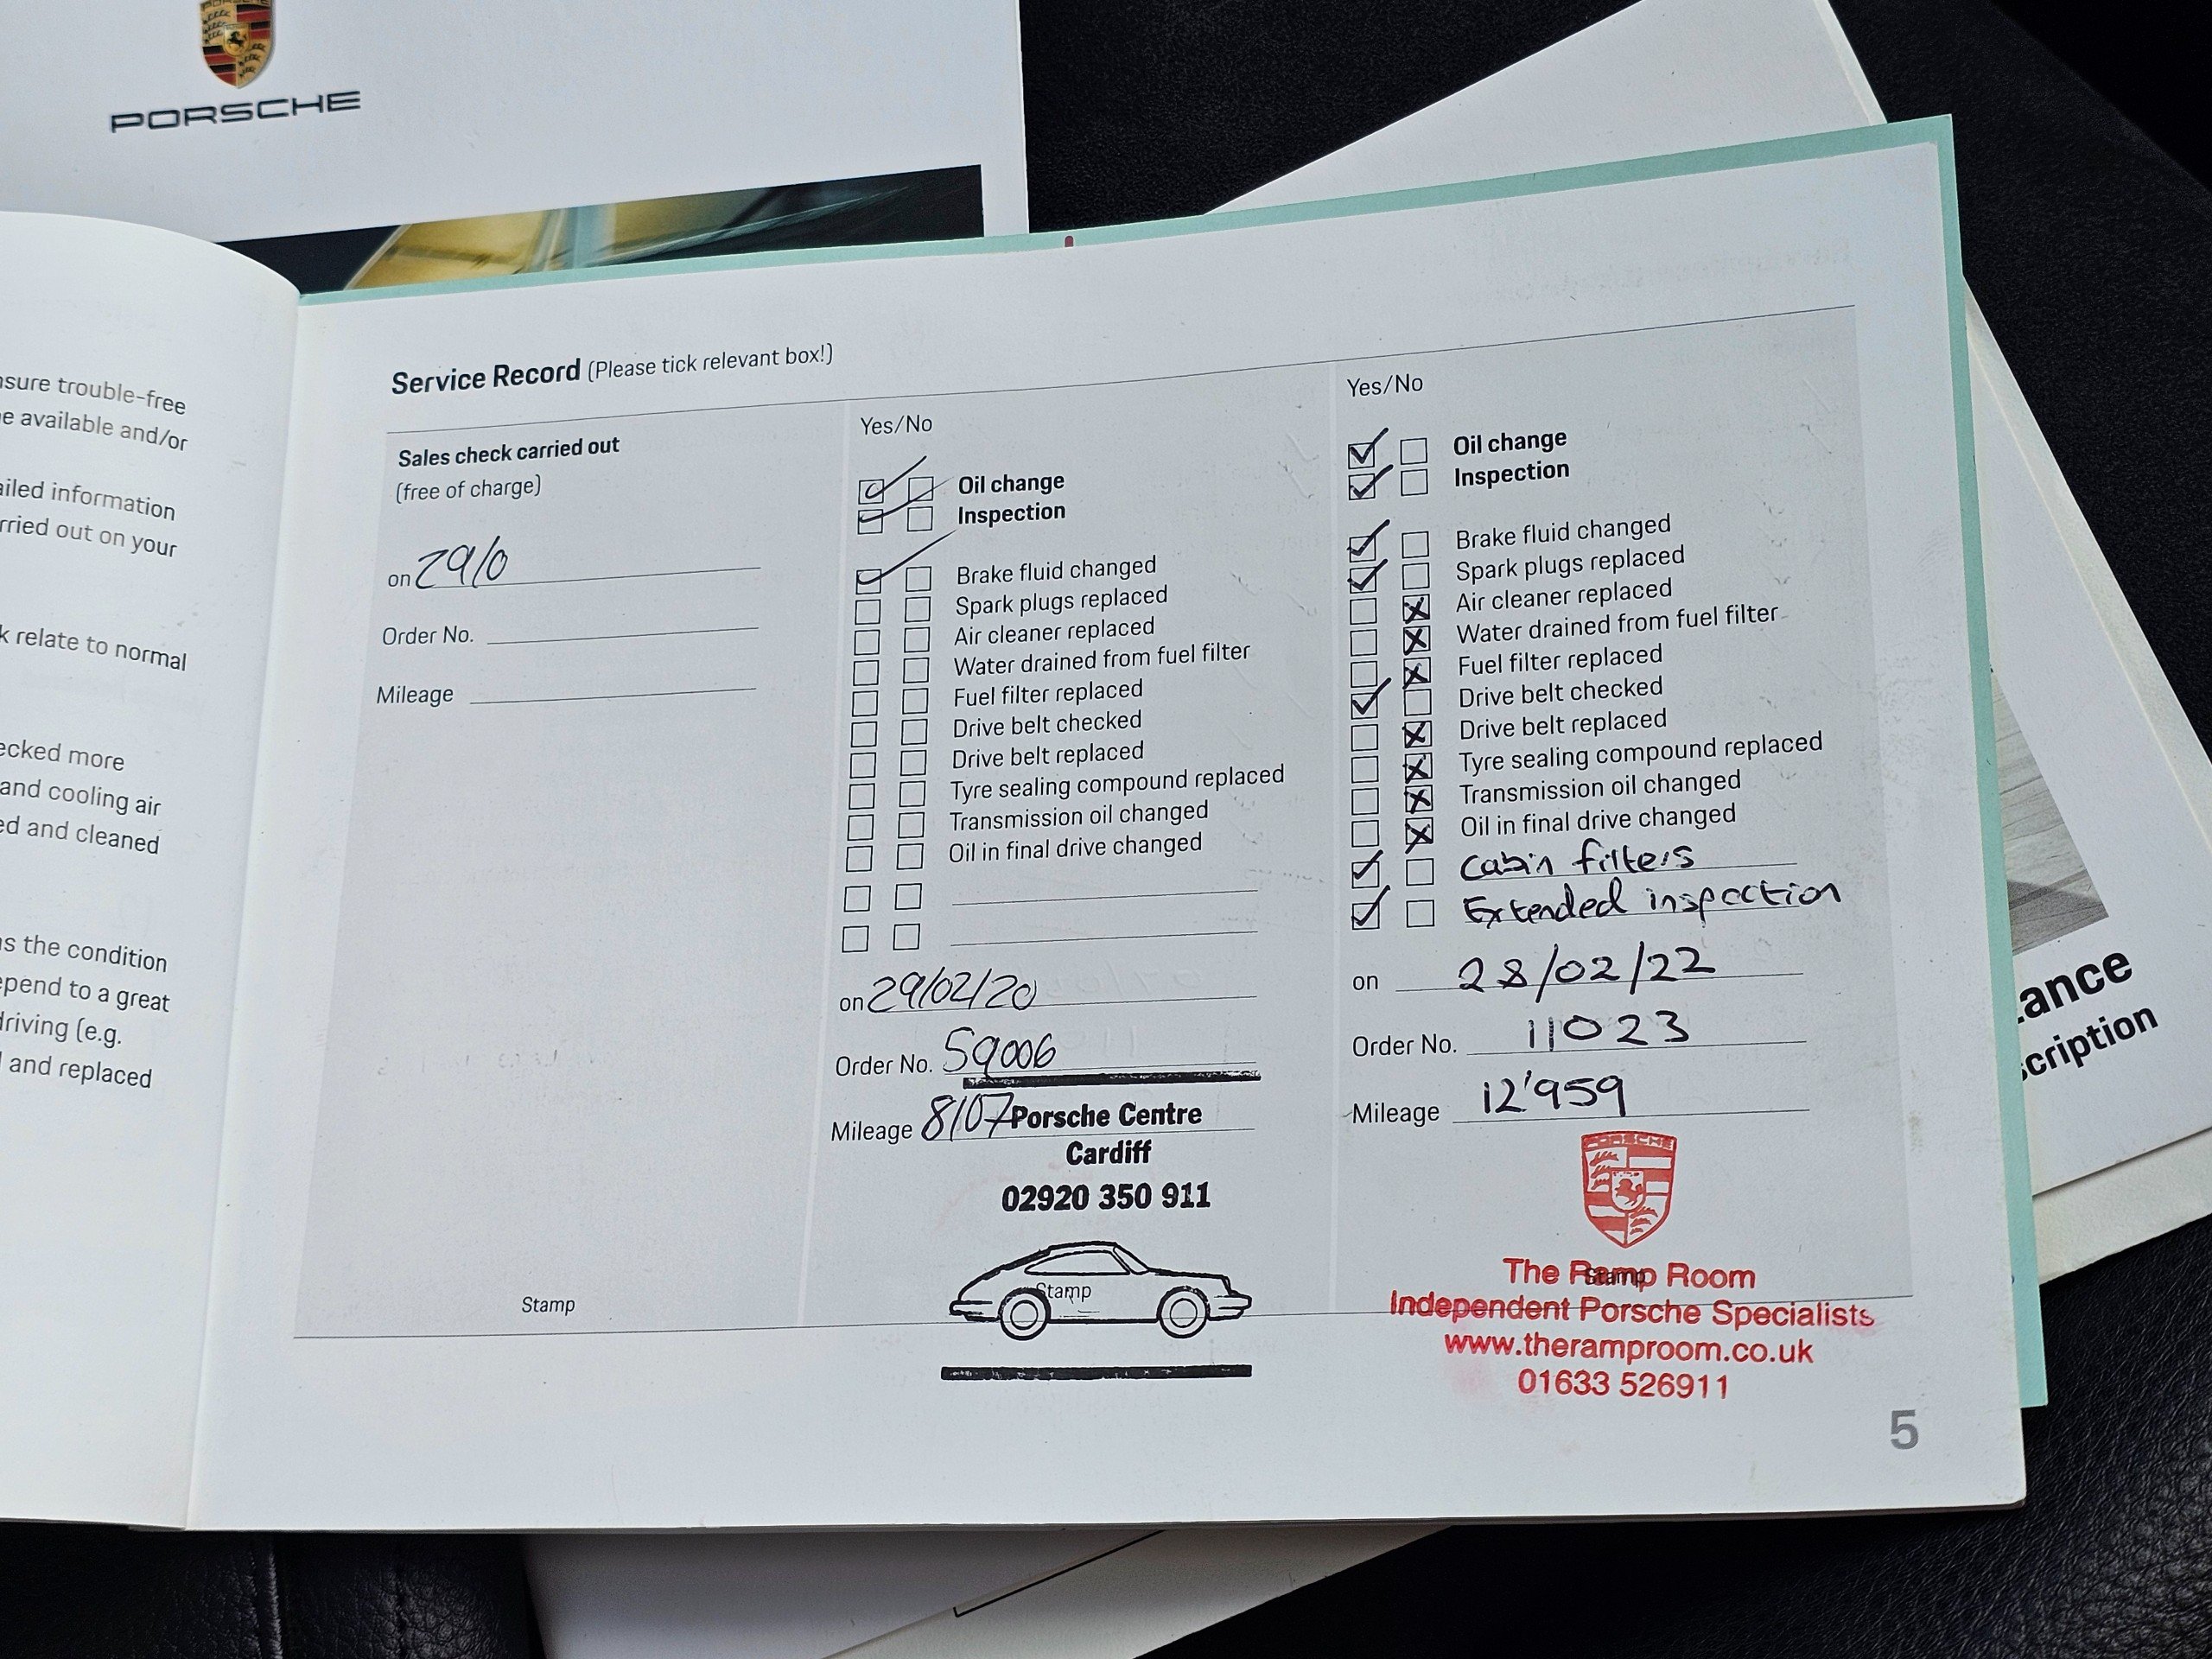 PORSCHE
nsure trouble-free
e available and/or
ailed information
rried out on your
k relate to normal
ecked more
and cooling air
ed and cleaned
as the condition
epend to a great
driving (e.g.
and replaced
Service Record (Please tick relevant box!)
Sales check carried out
(free of charge)
on 29/0
Order No.
Mileage
Stamp
Yes/No
Oil change
Inspection
Brake fluid changed
Spark plugs replaced
Air cleaner replaced
Water drained from fuel filter
Fuel filter replaced
Drive belt checked
Drive belt replaced
Tyre sealing compound replaced
Transmission oil changed
Oil in final drive changed
on 29/02/20
Order No. 59006
Mileage 8107
Porsche Centre
Cardiff
02920 350 911
Stamp
Yes/No
Oil change
Inspection
Brake fluid changed
Spark plugs replaced
Air cleaner replaced
Water drained from fuel filter
Fuel filter replaced
Drive belt checked
Drive belt replaced
Tyre sealing compound replaced
Transmission oil changed
Oil in final drive changed
Cabin filters
Extended inspection
on 28/02/22
Order No. 11023
Mileage 12'959
PORSCHE
Stamp
The Ramp Room
Independent Porsche Specialists
www.theramproom.co.uk
01633 526911
5
ance
scription